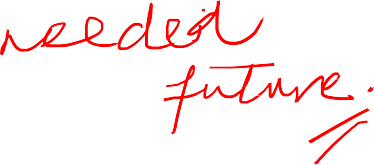 needed
future.